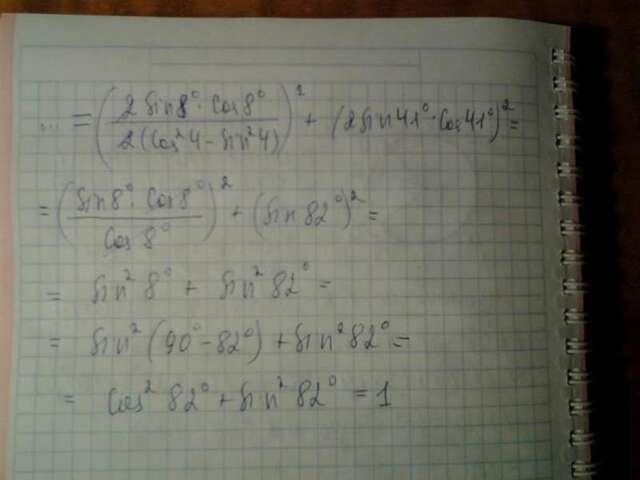 ... = (2 sin8° · cos8° / 2(cos²4 - sin²4))² + (2 sin41° · cos41°)² =
= (sin8° · cos8° / cos8°)² + (sin82°)² =
= sin²8° + sin²82° =
= sin²(90° - 82°) + sin²82° =
= cos²82° + sin²82° = 1